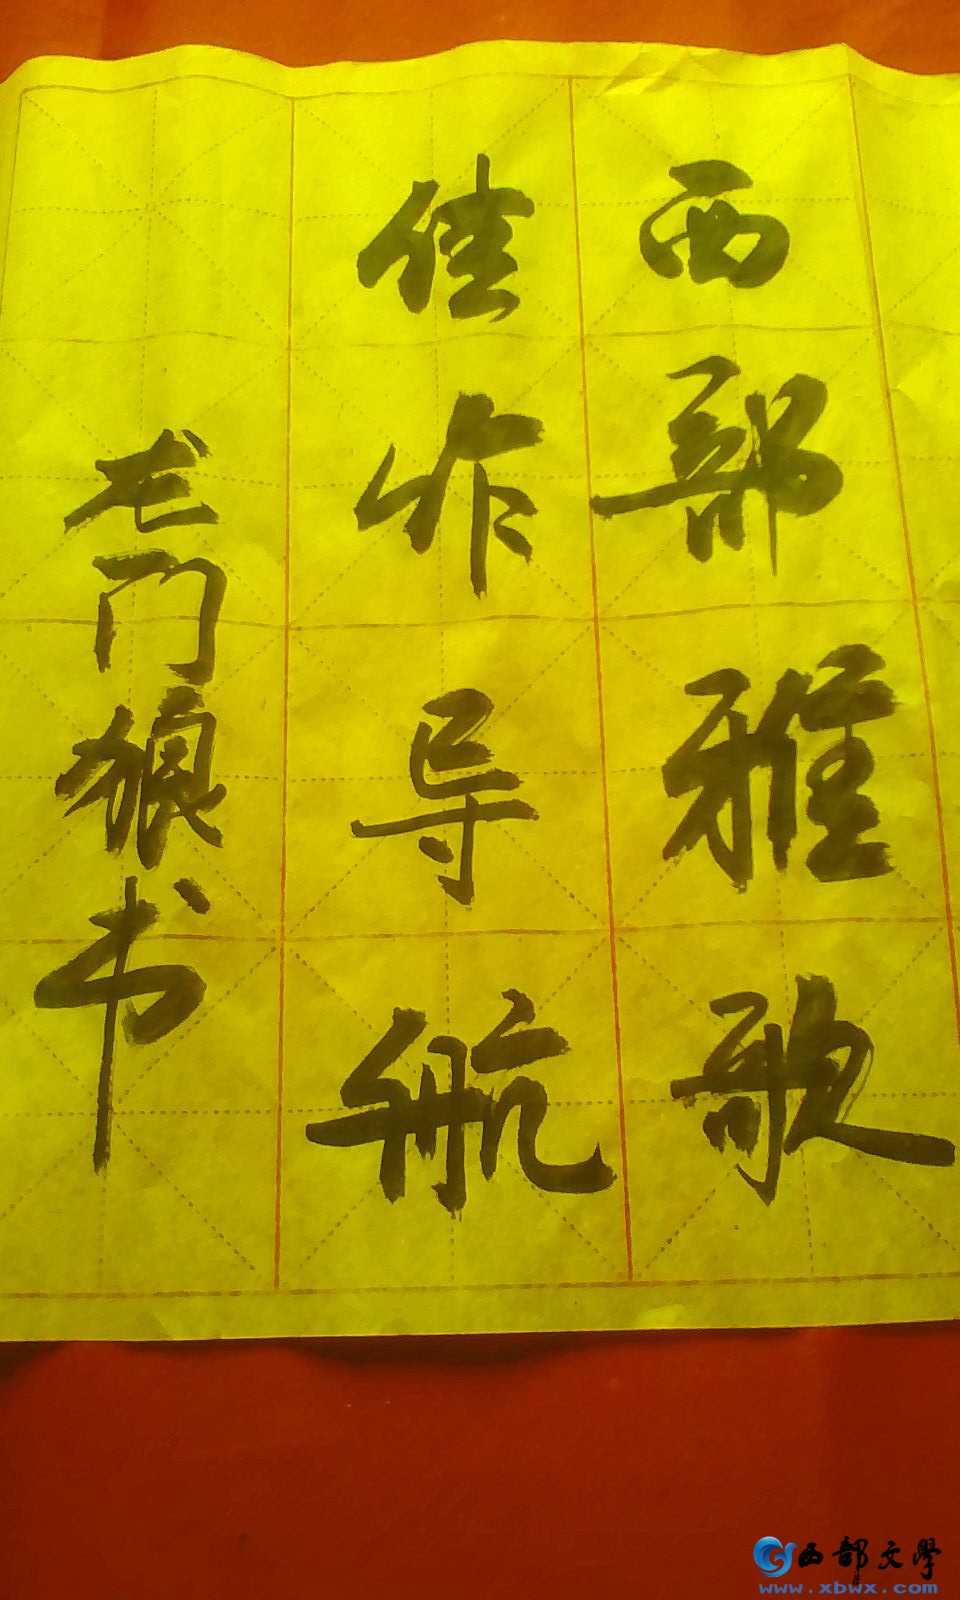 西部雅歌
佳作导航
龙门狼书
西部文學
www.xbwx.com